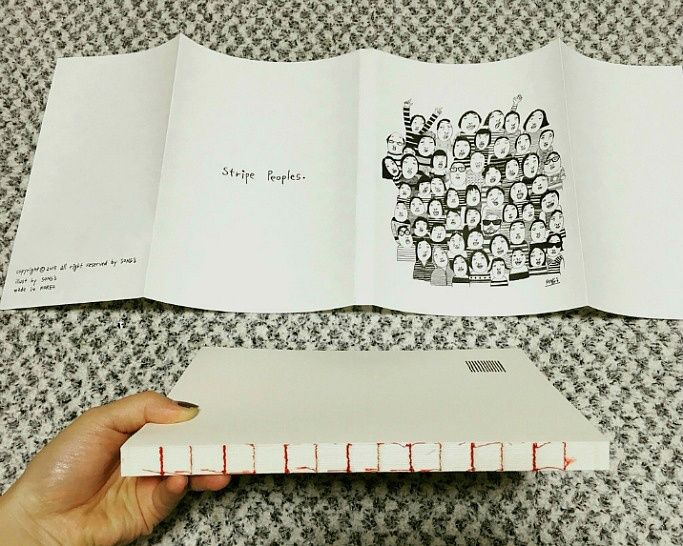 Stripe Peoples.
copyright© 2015 all right reserved by SONGI
illust by SONGI
made in KOREA
SONGI